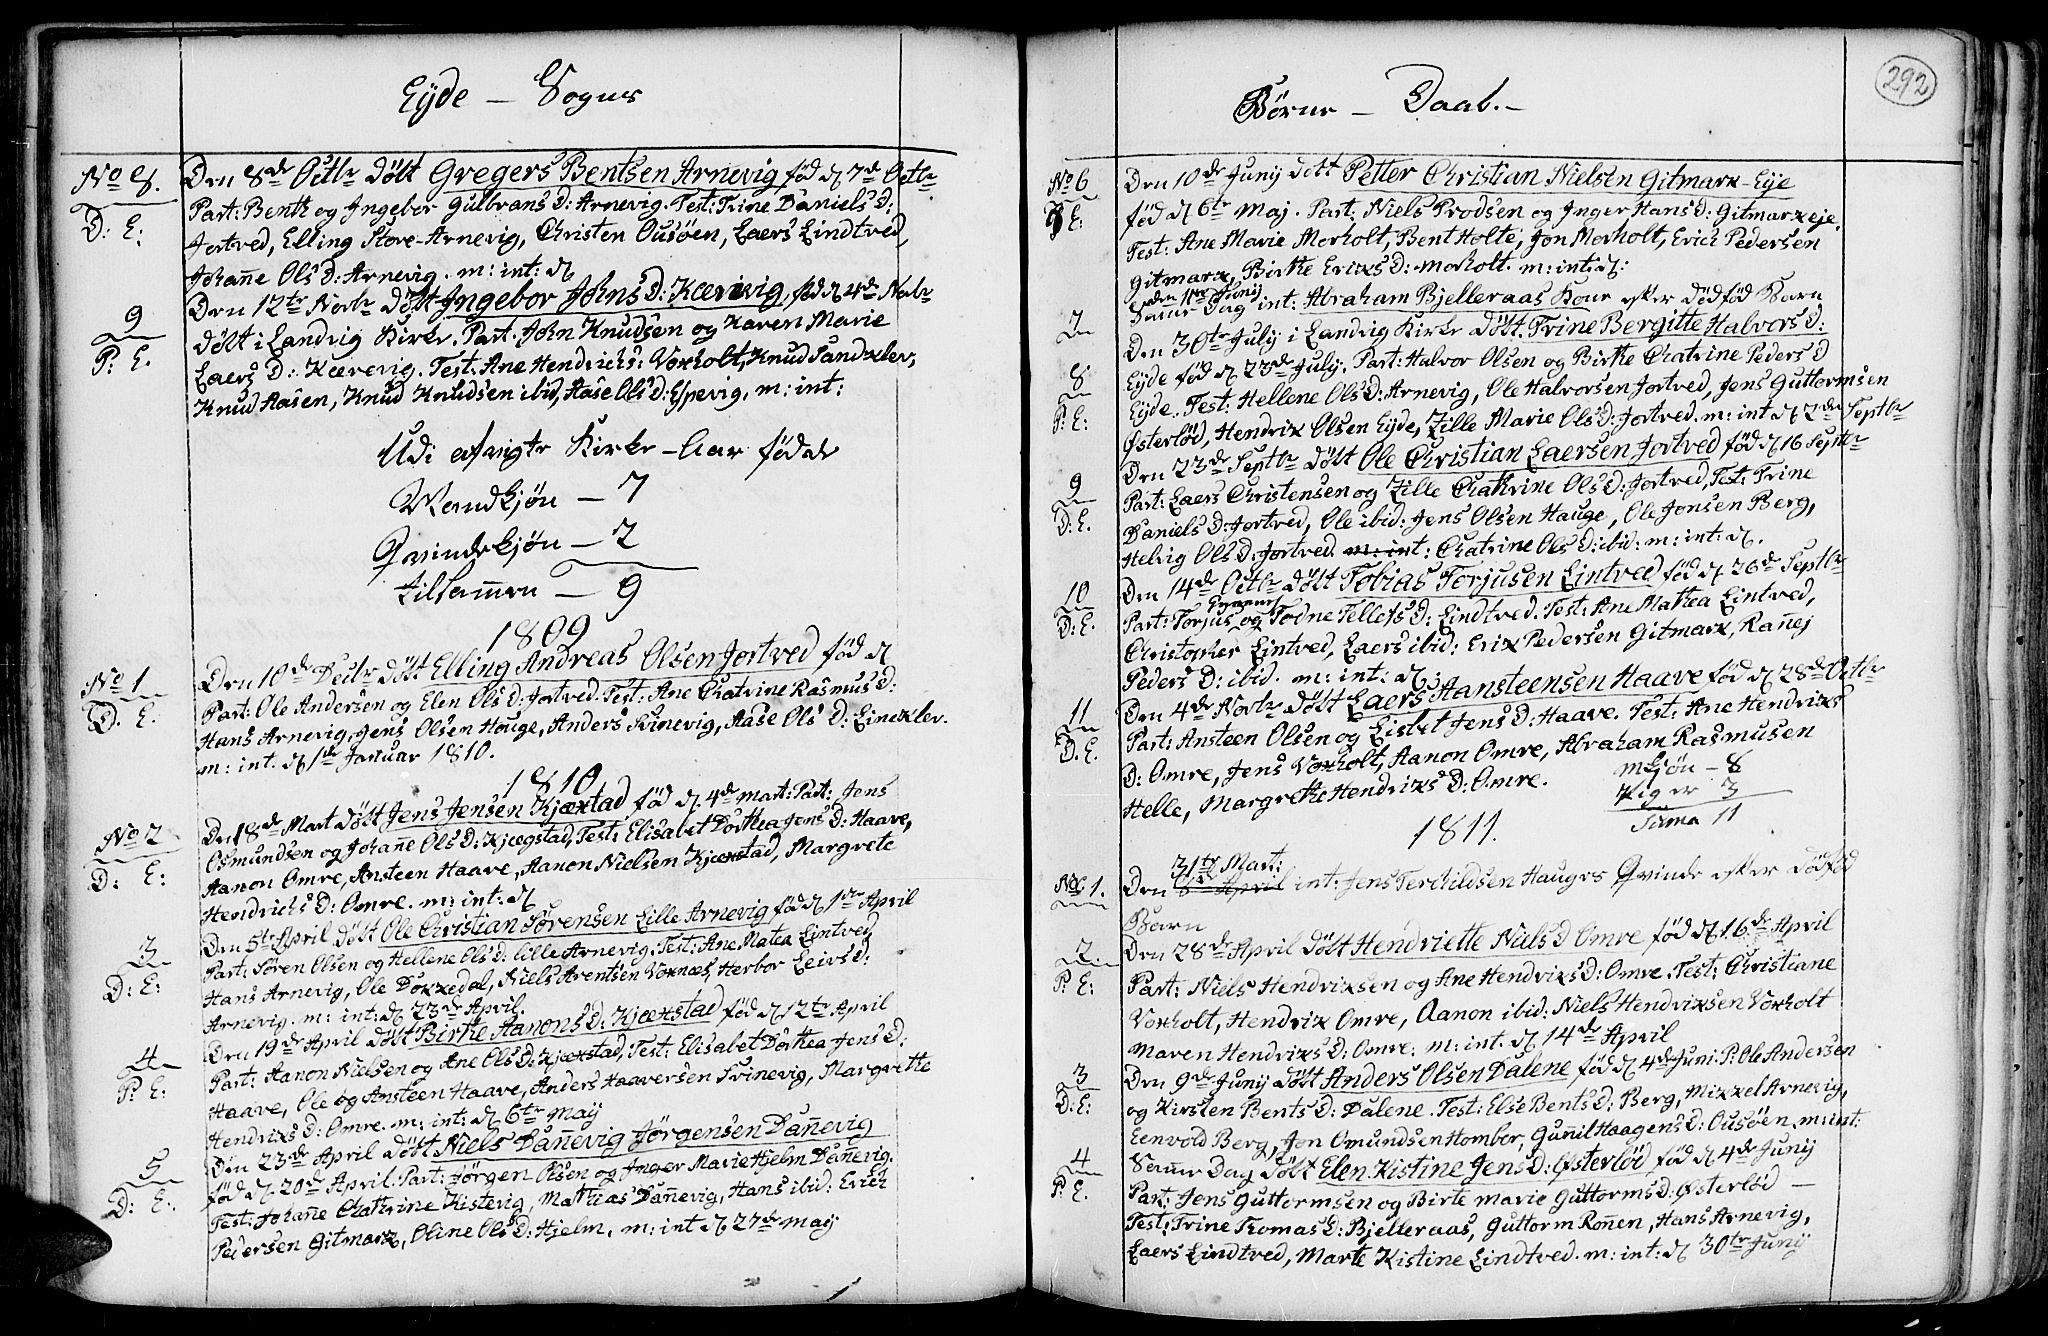 Eyde — Sogns
No 8.
D: E:
Den 8de Octbr Døbt Gregers Bentsen Arnevig fød d 7de Octbr
Part: Benth og Ingebor Gulbrans D: Arnevig. Test: Trine Daniels D:
Jortved, Elling Store-Arnevig, Christen Ousøen, Laers Lindtved,
Johañe Ols D: Arnevig. m: int: d
9
P: E.
Den 12te Novbr Døbt Ingebor Johns D: Kærevig, fød d 4de Novbr
døbt i Landvig Kirke. Part. John Knudsen og Karen Marie
Laers D: Kærevig. Test: Ane Hendrichs: Voxholt, Knud Sandxlev,
Knud Aasen, Knud Knudsen ibid, Aase Ols D: Espevig, m: int:
Udi afvigte Kirke-Aar fødde
Mandkjøn — 7
Qvindekjøn — 2
tilsam̃en — 9
1809
No 1
D. E.
Den 10de Decbr døbt Elling Andreas Olsen Jortved fød d
Part: Ole Andersen og Elen Ols D: Jortved. Test: Ane Chatrine Rasmus D:
Hans Arnevig, Jens Olsen Houge, Anders Svinevig, Aase Ols D: Linexlev.
m: int. d 1de Januar 1810.
1810
No 2
D: E:
Den 18de Mart døbt Jens Jensen Kjæxstad fød d 4de mart: Part: Jens
Osmundsen og Johañe Ols D: Kjægstad, Test: Elisabet Dorthea Jens D: Haave,
Aanon Omre, Ansteen Haave, Aanon Nielsen Kjæxstad, Margrete
Hendrichs D: Omre. m: int: d
3
D: E:
Den 5te April døbt Ole Christian Sørensen Lille Arnevig fød d 1ste April
Part: Søren Olsen og Hellene Ols D: lille Arnevig. Test: Ane Matea Lintved
Hans Arnevig, Ole Doxxedal, Niels Arentsen Voxnæs, Herbor Leivs D:
Arnevig. m: int: d 23de April.
4
P: E:
Den 19de April døbt Birthe Aanons D: Kjæxstad fød d 12te April
Part: Aanon Nielsen og Ane Ols D: Kjæxstad, Test: Elisabet Dorthea Jens D:
Haave, Ole og Ansteen Haave, Anders Haaversen Svinevig, Margrette
Hendrixs D: Omre. m: int: d 6te Maÿ
5
D: E:
Den 23de April døbt Niels Dañevig Jørgensen Dañevig
fød d 20de April. Part: Jörgen Olsen og Inger Marie Hjelm Dañevig.
Test: Johañe Chathrine Kistevig, Mathias Dañevig, Hans ibid: Erich
Pedersen Gitmark, Oline Ols D: Hjelm, m: int d 27de Maÿ
Børne — Daab. —
292
No 6
D E:
Den 10de Junÿ døbt Petter Christian Nielsen Gitmarx-Eye
fød d 6te Maj. Part: Niels Trodsen og Inger Hans D: Gitmarxeje.
Test: Ane Marie Morholt, Bent Holte, Jon Morholt, Erich Pedersen
Gitmarx, Birthe Erixs D: Morholt. m: int: d:
den 11te Junÿ
7
Samme Dag int: Abraham Bjelleraas Kone efter dødfød Barn
8
P: E:
Den 30te July i Landvig Kirke døbt Trine Bergitte Halvors D:
Eyde fød d 23de July. Part: Halvor Olsen og Birthe Chatrine Peders D
Eyde. Test: Hellene Ols D: Arnevig, Ole Halvorsen Jortved, Jens Guttormsen
Østerlød, Hendrix Olsen Eyde, Zille Marie Ols D: Jortved. m: int d 2de Septbr
9
D: E.
Den 23de Septbr døbt Ole Christian Laersen Jortved fød d 16 Septbr
Part: Laers Christensen og Zille Chathrine Ols D: Jortved, Test: Trine
Daniels D: Jortved, Ole ibid: Jens Olsen Hauge, Ole Jonsen Berg,
Helvig Ols D: Jortved m: int: Chatrine Ols D: ibid: m: int: d.
10
D: E.
Den 14de Octbr døbt Tobias Torjusen Lintved fød d 26de Septbr
Part: Torjus og Todne Tellefs D: Lindtved. Test: Ane Mathea Lintved,
Christopher Lintved, Laers ibid: Erix Pedersen Gitmarx, Rañej
Peders D: ibid. m: int: d
11
D. E.
Den 4de Novbr døbt Laers Aansteensen Haave fød d 28de Octbr
Part: Ansteen Olsen og Lisbet Jens D: Haave. Test: Ane Hendrixs
D: Omre, Jens Voxholt, Aanon Omre, Abraham Rasmusen
Helle, Margrethe Hendrixs D: Omre.
Mkjøn — 8
Piger 3
Suma 11
1811.
31te Mart:
No 1.
Den 8de April int: Jens Terchildsen Hauges Qvinde efter dødfød
Barn
2.
P: E:
Den 28de April døbt Hendriette Niels D Omre fød d 16de April
Part: Niels Hendrixsen og Ane Hendrixs D: Omre. Test: Christiane
Voxholt, Hendrix Omre, Aanon ibid: Niels Hendrixsen Voxholt
Maren Hendrixs D: Omre: m: int. d 14de April
3
D: E:
Den 9de Junÿ døbt Anders Olsen Dalene fød d 4de Juni. P: Ole Andersen
og Kirsten Bents D: Dalene. Test: Else Bents D: Berg, Mixxel Arnevig,
Eenvold Berg, Jon Omundsen Hombor, Guñil Haagens D: Ousøen, m: int:
4
P: E.
Sam̃e Dag døbt Elen Kistine Jens D: Østerlød fød d 4de Junÿ
Part: Jens Guttormsen og Birte Marie Guttorms D: Østerlød —
Test: Trine Thomas D: Bjelleraas, Guttorm Roñen, Hans Arnevig,
Laers Lindtved, Marte Kistine Lindtved. m: int: d 30te Junÿ